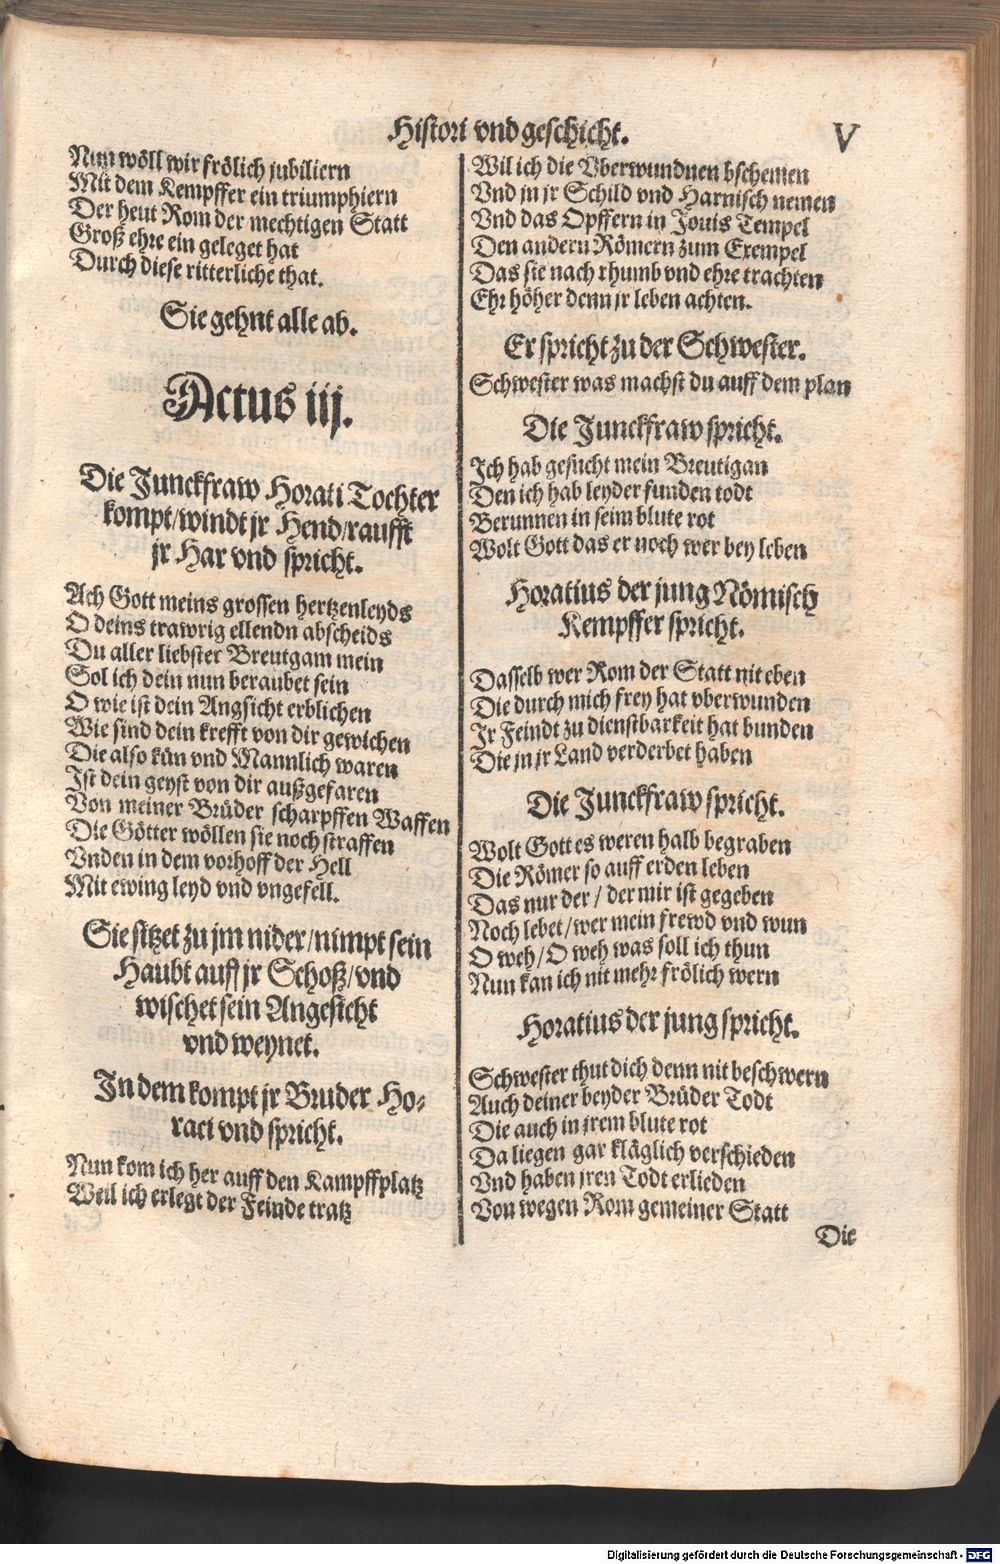 Histori vnd geschicht.
V
Nun wöll wir frölich jubiliern
Mit dem Kempffer ein triumphiern
Der heut Rom der mechtigen Statt
Groß ehre ein geleget hat
Durch diese ritterliche that.
Sie gehnt alle ab.
Actus iij.
Die Junckfraw Horati Tochter
kompt/windt jr Hend/raufft
jr Har vnd spricht.
Ach Gott meins grossen hertzenleyds
O deins trawrig ellendn abscheids
Du aller liebster Breutgam mein
Sol ich dein nun beraubet sein
O wie ist dein Angsicht erblichen
Wie sind dein krefft von dir gewichen
Die also kün vnd Mannlich waren
Ist dein geyst von dir außgefaren
Von meiner Brüder scharpffen Waffen
Die Götter wöllen sie noch straffen
Vnden in dem vorhoff der Hell
Mit ewing leyd vnd vngefell.
Sie sitzet zu jm nider/nimpt sein
Haubt auff jr Schoß/vnd
wischet sein Angesicht
vnd weynet.
In dem kompt jr Bruder Ho-
raci vnd spricht.
Nun kom ich her auff den Kampffplatz
Weil ich erlegt der Feinde tratz
Wil ich die Vberwundnen bschemen
Vnd jn jr Schild vnd Harnisch nemen
Vnd das Opffern in Jouis Tempel
Den andern Römern zum Exempel
Das sie nach rhumb vnd ehre trachten
Ehr höher denn jr leben achten.
Er spricht zu der Schwester.
Schwester was machst du auff dem plan
Die Junckfraw spricht.
Ich hab gesucht mein Breutigan
Den ich hab leyder funden todt
Berunnen in seim blute rot
Wolt Gott das er noch wer bey leben
Horatius der jung Nömisch
Kempffer spricht.
Dasselb wer Rom der Statt nit eben
Die durch mich frey hat vberwunden
Ir Feindt zu dienstbarkeit hat bunden
Die jn jr Land verderbet haben
Die Junckfraw spricht.
Wolt Gott es weren halb begraben
Die Römer so auff erden leben
Das nur der / der mir ist gegeben
Noch lebet/wer mein frewd vnd wun
O weh/O weh was soll ich thun
Nun kan ich nit mehr frölich wern
Horatius der jung spricht.
Schwester thut dich denn nit beschwern
Auch deiner beyder Brüder Todt
Die auch in jrem blute rot
Da liegen gar kläglich verschieden
Vnd haben jren Todt erlieden
Von wegen Rom gemeiner Statt
Die
Digitalisierung gefördert durch die Deutsche Forschungsgemeinschaft - DFG